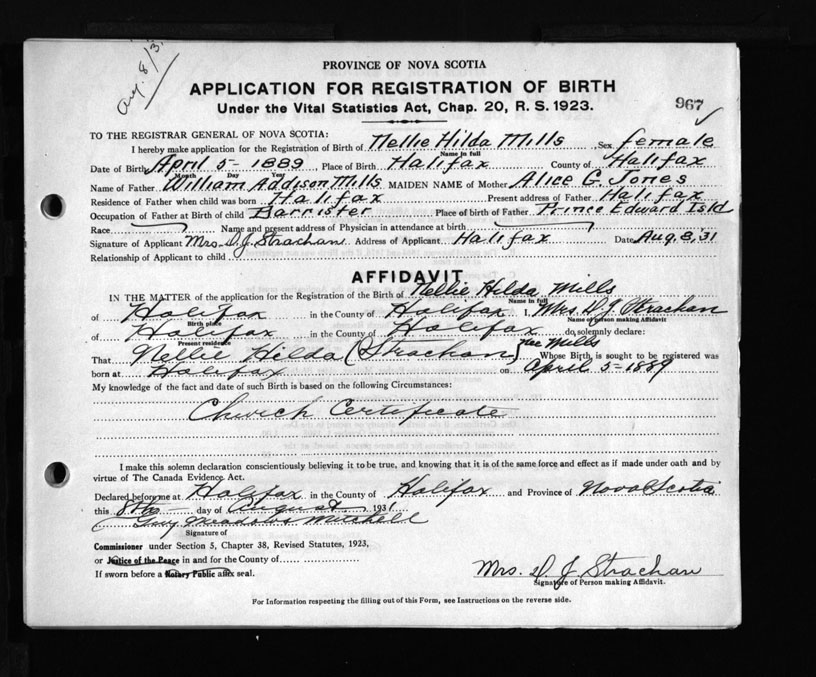 Aug. 8/31
PROVINCE OF NOVA SCOTIA
APPLICATION FOR REGISTRATION OF BIRTH
Under the Vital Statistics Act, Chap. 20, R. S. 1923.
967
TO THE REGISTRAR GENERAL OF NOVA SCOTIA:
I hereby make application for the Registration of Birth of Nellie Hilda Mills, Sex female
Name in full
Date of Birth April 5 - 1889, Place of Birth Halifax County of Halifax
Month Day Year
Name of Father William Addison Mills MAIDEN NAME of Mother Alice C. Jones
Residence of Father when child was born Halifax Present address of Father Halifax
Occupation of Father at Birth of child Barrister Place of birth of Father Prince Edward Isld
Race Name and present address of Physician in attendance at birth
Signature of Applicant Mrs. D. J. Strachan Address of Applicant Halifax Date Aug. 8, 31
Relationship of Applicant to child
AFFIDAVIT
IN THE MATTER of the application for the Registration of the Birth of Nellie Hilda Mills
Name in full
of Halifax in the County of Halifax I, Mrs. D. J. Strachan
Birth place Name of person making Affidavit
of Halifax in the County of Halifax do solemnly declare:
Present residence
That Nellie Hilda (Strachan) nee Mills Whose Birth is sought to be registered was
born at Halifax on April 5 - 1889
My knowledge of the fact and date of such Birth is based on the following Circumstances:
Church Certificate
I make this solemn declaration conscientiously believing it to be true, and knowing that it is of the same force and effect as if made under oath and by
virtue of The Canada Evidence Act.
Declared before me at Halifax in the County of Halifax and Province of Nova Scotia
this 8th day of August 1931
Guy Meadows Mitchell
Signature of
Commissioner under Section 5, Chapter 38, Revised Statutes, 1923,
or Justice of the Peace in and for the County of
If sworn before a Notary Public affix seal.
Mrs. D J Strachan
Signature of Person making Affidavit.
For Information respecting the filling out of this Form, see Instructions on the reverse side.